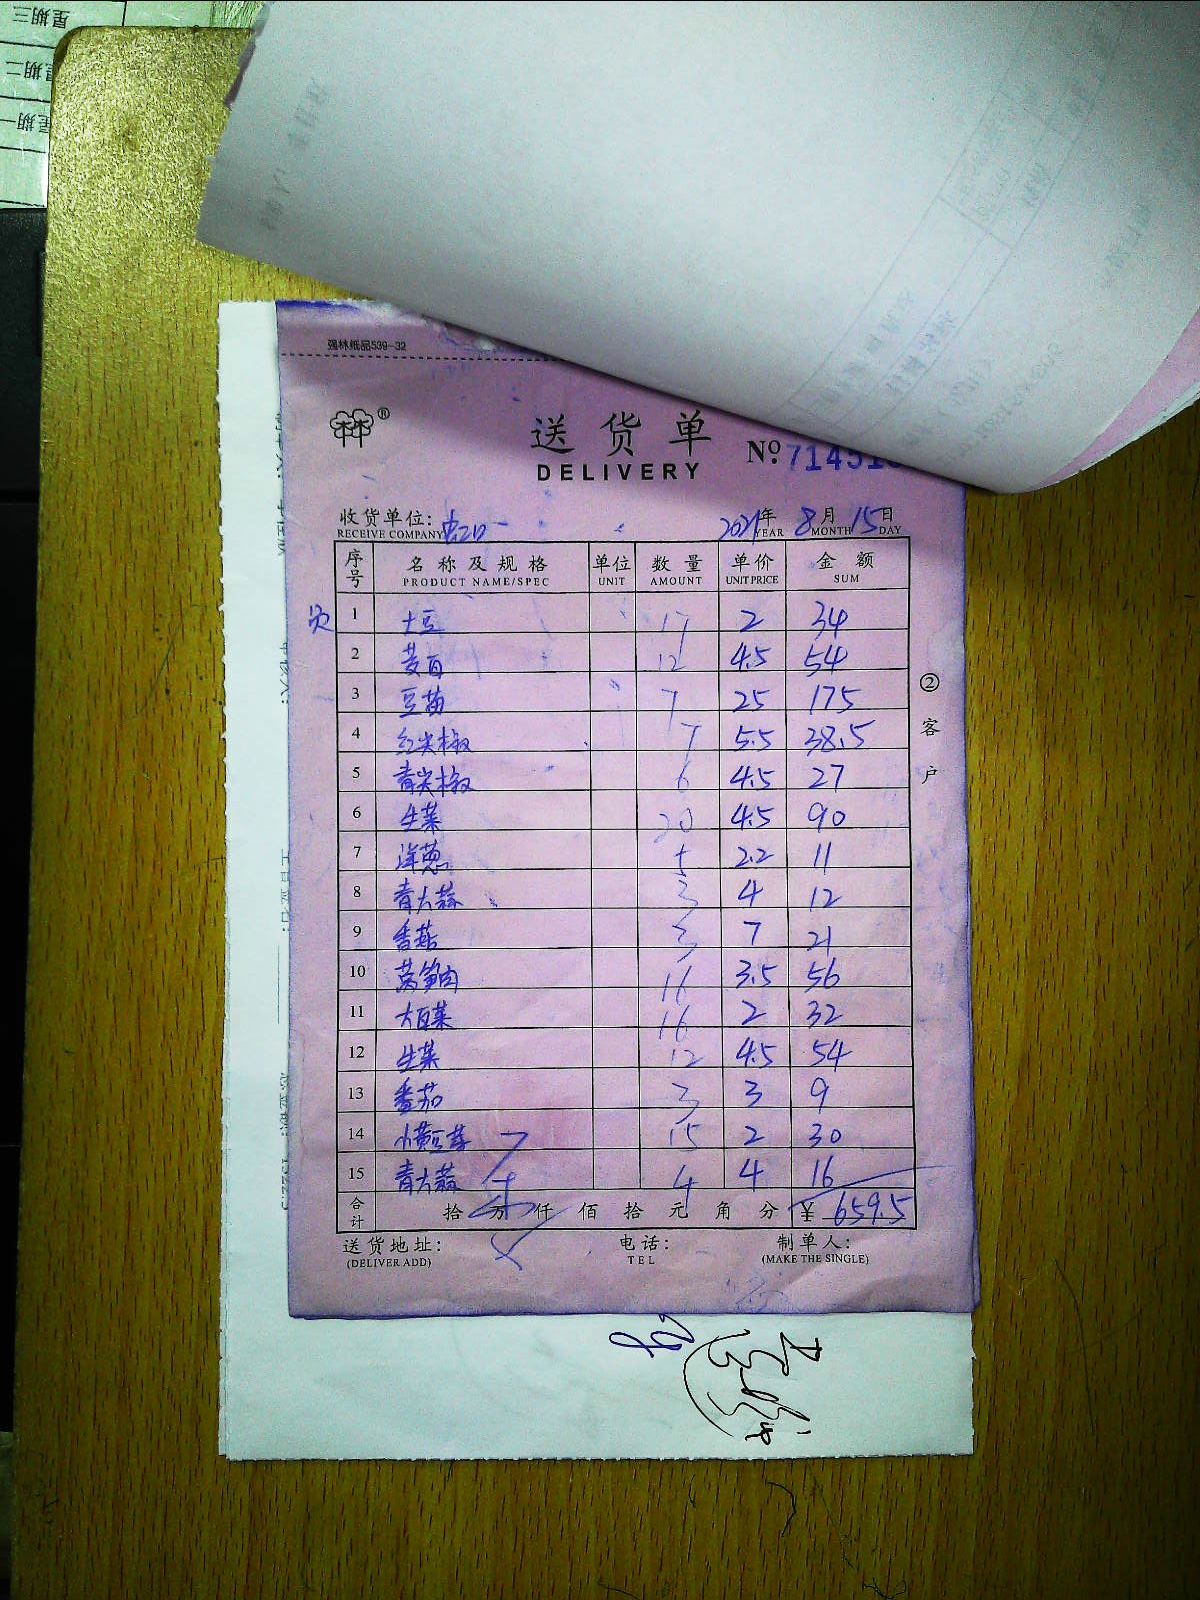 星期三
星期二
星期一
强林纸品539-32
林®
送货单
DELIVERY
No: 71451
收货单位: 虹口 2021年 8月 15日
RECEIVE COMPANY YEAR MONTH DAY
序号 名称及规格 单位 数量 单价 金额
PRODUCT NAME/SPEC UNIT AMOUNT UNIT PRICE SUM
1 土豆 17 2 34
2 茭白 12 4.5 54
3 豆苗 7 25 175
4 红尖椒 7 5.5 38.5
5 青尖椒 6 4.5 27
6 生菜 20 4.5 90
7 洋葱 5 2.2 11
8 青大蒜 3 4 12
9 香菇 3 7 21
10 莴笋肉 16 3.5 56
11 大白菜 16 2 32
12 生菜 12 4.5 54
13 番茄 3 3 9
14 小黄豆芽 15 2 30
15 青大蒜 4 4 16
合计 拾 万 仟 佰 拾 元 角 分 ¥ 659.5
送货地址: 电话: 制单人:
(DELIVER ADD) TEL (MAKE THE SINGLE)
②客户